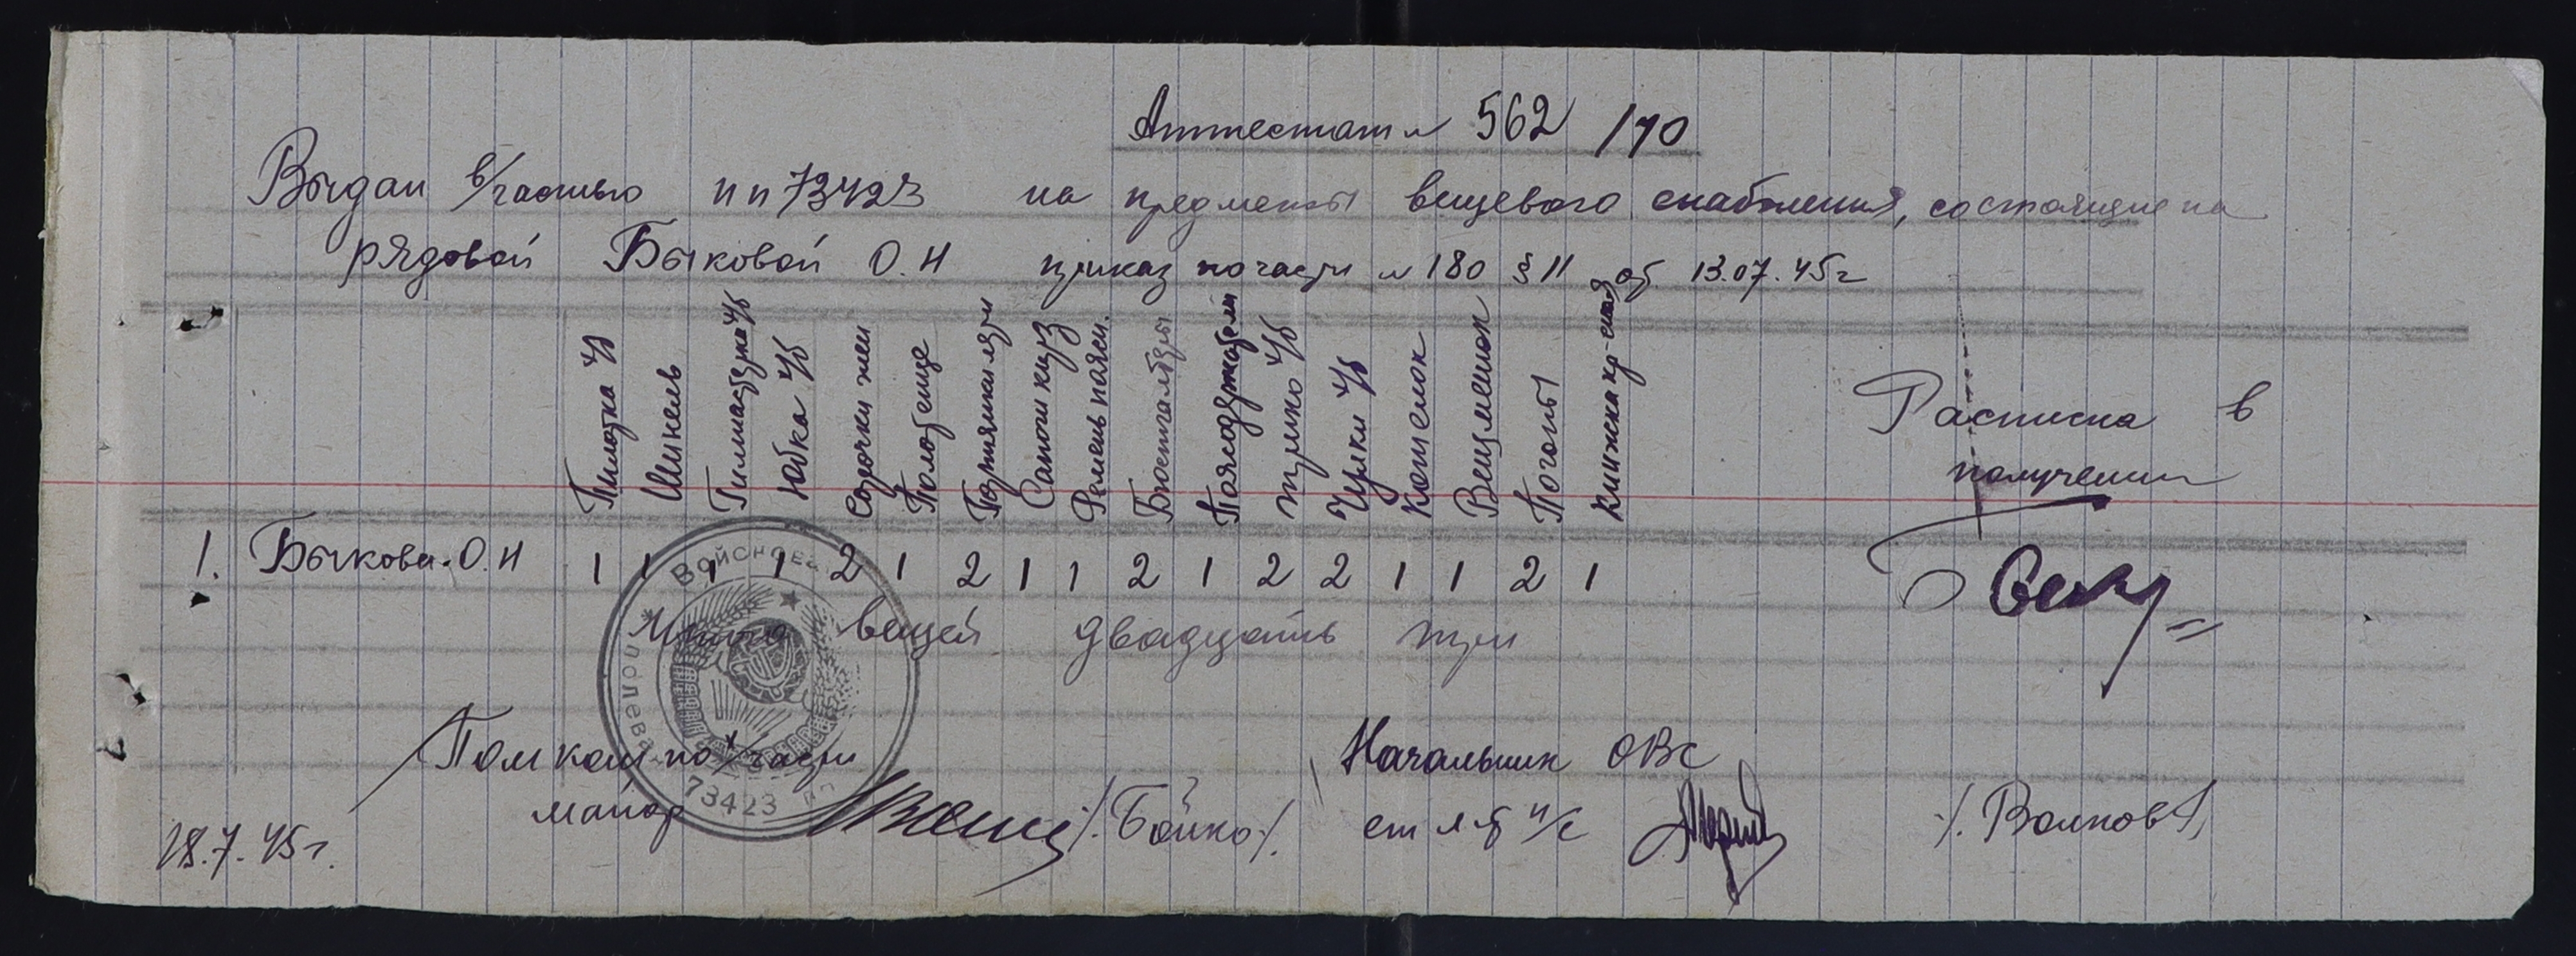 Аттестат № 562 /170
Выдан в/частью пп 73423 на предметы вещевого снабжения, состоящие на
рядовой Быковой О.Н приказ по части № 180 § 11 от 13.07.45г
Пилотка х/б
Шинель
Гимнастерка х/б
Юбка х/б
Сорочки жен
Полотенце
Портянки летн
Сапоги кирз
Ремень поясн.
Бюстгалтеры
Поясодержатели
Трико х/б
Чулки х/б
Кошелок
Вещмешок
Погоны
Книжка кр-сная
Расписка в
получении
1. Быкова О.Н 1 1 1 1 2 1 2 1 1 2 1 2 2 1 1 2 1
Итого вещей двадцать три
Войсковая
полевая
73423 пп
Пом ком по х/части
майор /.Бойко/.
Начальник ОВС
ст л-т и/с /.Волков/.
18.7.45г.